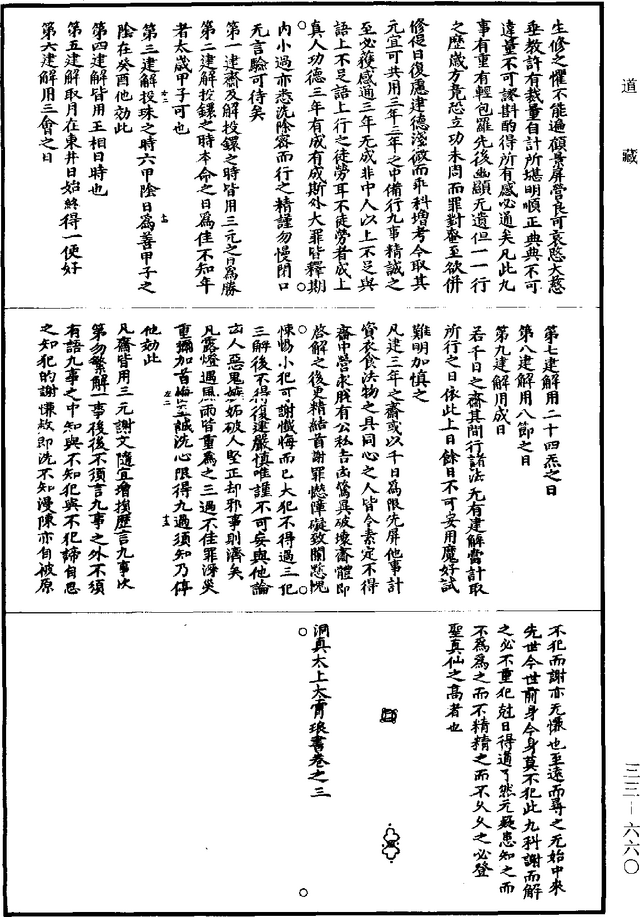 道藏
生修之懼不能遍顧景屏營良可哀愍大慈
垂教許有裁量自計所堪明順正典典不可
違量不可謬斟酌得所有感必通矣凡此九
事有重有輕包羅先後幽顯无遺但一一行
之歷歲方竟恐立功未周而罪對壅至欲併
修促日復應建德淺微而乖科增考令取其
元宜可共用三年三年之中備行九事精誠之
至必獲感通三年无成非中人以上不足與
語上不足語上行之徒勞耳不徒勞者成上
真人功德三年有成有成斯外大罪皆釋期
内小過亦悉洗陰密而行之精謹勿慢閉口
无言驗可待矣
第一建齋及解投鐶之時皆用三元之日為勝
第二建解投鐶之時本命之日為佳不知年
者太歲甲子可也
第三建解投珠之時六甲陰日為善甲子之
陰在癸酉他効此
第四建解皆用王相日時也
第五建解取月在東井日始終得一便好
第六建解用三會之日
第七建解用二十四炁之日
第八建解用八節之日
第九建解用成日
若千日之齋其間行諸法无有建解當計取
所行之日依此上日餘日不可妄用魔好試
難明加慎之
凡建三年之齋或以千日為限先屏他事計
資衣食法物之具同心之人皆令素定不得
齋中營求脫有公私吉凶驚異破壞齋體即
啓解之後更精結首謝罪愆障礙致闕愁愧
悚惕小犯可謝懺悔而已大犯不得過三犯
三解後不得復建嚴慎唯謹不可妄與他論
凶人惡鬼嫉妬破人堅正却邪事則濟矣
凡露燈遇風雨皆重為之三過不佳罪深災
重彌加首悔至誠洗心限得九過須知乃停
他効此
凡齋皆用三元謝文隨宜增損歷言九事次
第勿繁解一事後後不須言九事之外不須
有語九事之中知與不知犯與不犯諦自思
之知犯的謝慊故即洗不知漫陳亦自被原
不犯而謝亦无慊也至遠而尋之无始中來
先世今世前身今身莫不犯此九科謝而解
之必不重犯尅日得道了然无疑患知之而
不為為之而不精精之而不久久之必登
聖真仙之高者也
洞真太上太霄琅書卷之三
三三－六六〇